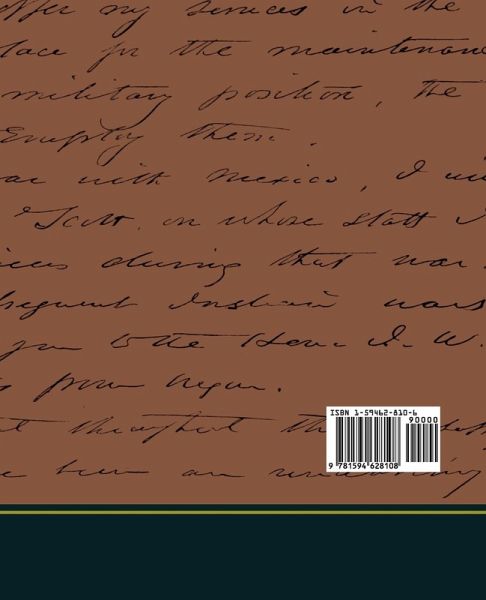 offer my services in the
place for the maintenance
military position, the
Employ them.
war with Mexico, I
Scott, on whose staff I
during that war.
Indian wars
to the Hon. I. W.
throughout
been an
ISBN 1-59462-810-6
90000
9 781594 628108